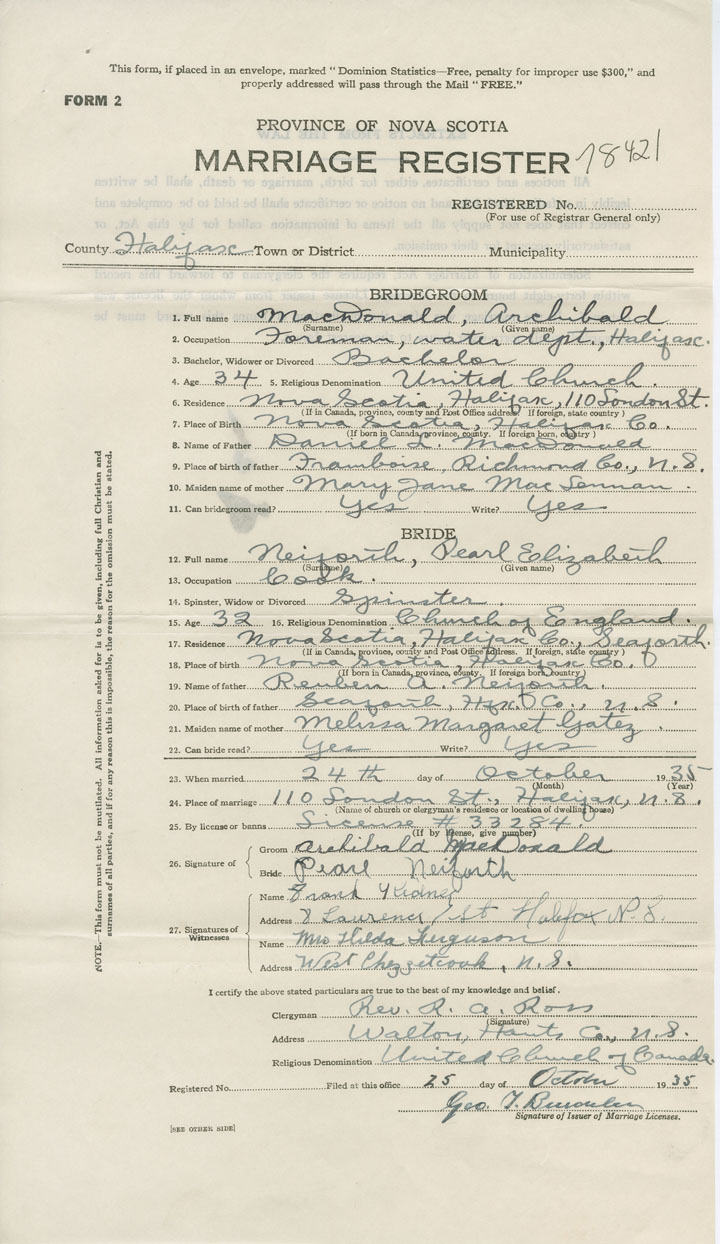 This form, if placed in an envelope, marked "Dominion Statistics—Free, penalty for improper use $300," and
properly addressed will pass through the Mail "FREE."
FORM 2
PROVINCE OF NOVA SCOTIA
MARRIAGE REGISTER 18421
REGISTERED No.
(For use of Registrar General only)
County Halifax Town or District Municipality
BRIDEGROOM
1. Full name MacDonald, Archibald
(Surname) (Given name)
2. Occupation Foreman, water dept., Halifax.
3. Bachelor, Widower or Divorced Bachelor
4. Age 34 5. Religious Denomination United Church.
6. Residence Nova Scotia, Halifax, 110 London St.
(If in Canada, province, county and Post Office address If foreign, state country)
7. Place of Birth Nova Scotia, Halifax Co.
(If born in Canada, province, county. If foreign born, country)
8. Name of Father Daniel L. MacDonald
9. Place of birth of father Framboise, Richmond Co., N.S.
10. Maiden name of mother Mary Jane MacLennan.
11. Can bridegroom read? Yes Write? Yes
BRIDE
12. Full name Neiforth, Pearl Elizabeth
(Surname) (Given name)
13. Occupation Cook.
14. Spinster, Widow or Divorced Spinster.
15. Age 32 16. Religious Denomination Church of England.
17. Residence Nova Scotia, Halifax Co., Seaforth.
(If in Canada, province, county and Post Office address. If foreign, state country)
18. Place of birth Nova Scotia, Halifax Co.
(If born in Canada, province, county. If foreign born, country)
19. Name of father Reuben A. Neiforth.
20. Place of birth of father Seaforth, Hfx. Co., N.S.
21. Maiden name of mother Melissa Margaret Gatez
22. Can bride read? Yes Write? Yes
23. When married 24th day of October 1935
(Month) (Year)
24. Place of marriage 110 London St., Halifax, N.S.
(Name of church or clergyman's residence or location of dwelling house)
25. By license or banns License # 33284.
(If by license, give number)
26. Signature of
Groom Archibald MacDonald
Bride Pearl Neiforth
27. Signatures of Witnesses
Name Frank Kidney
Address Laurence St Halifax N.S.
Name Mrs Hilda Ferguson
Address West Chezzetcook, N.S.
I certify the above stated particulars are true to the best of my knowledge and belief.
Clergyman Rev. R. A. Ross
(Signature)
Address Walton, Hants Co., N.S.
Religious Denomination United Church of Canada.
Registered No. Filed at this office 25 day of October 1935
Geo. T.
Signature of Issuer of Marriage Licenses.
[SEE OTHER SIDE]
NOTE.—This form must not be mutilated. All information asked for is to be given, including full Christian and
surnames of all parties, and if for any reason this is impossible, the reason for the omission must be stated.